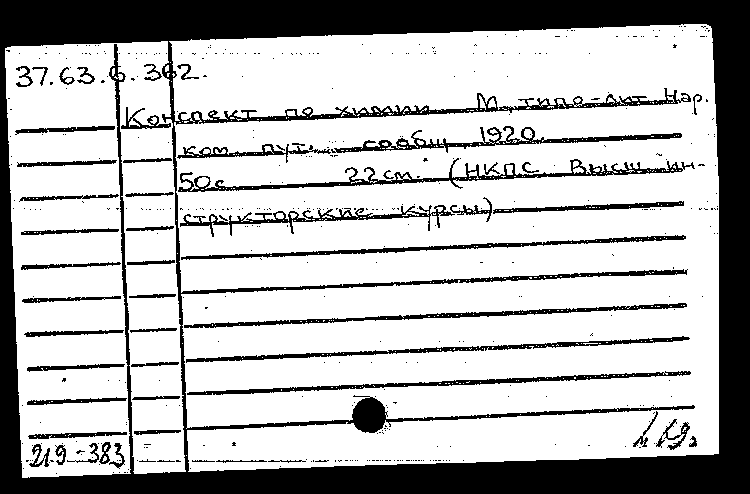 37.63.6.362.
Конспект по химии М, типо-лит Нар.
ком. пут. сообщ 1920.
50с 22см. (НКПС Высш ин-
структорские курсы)
219-383